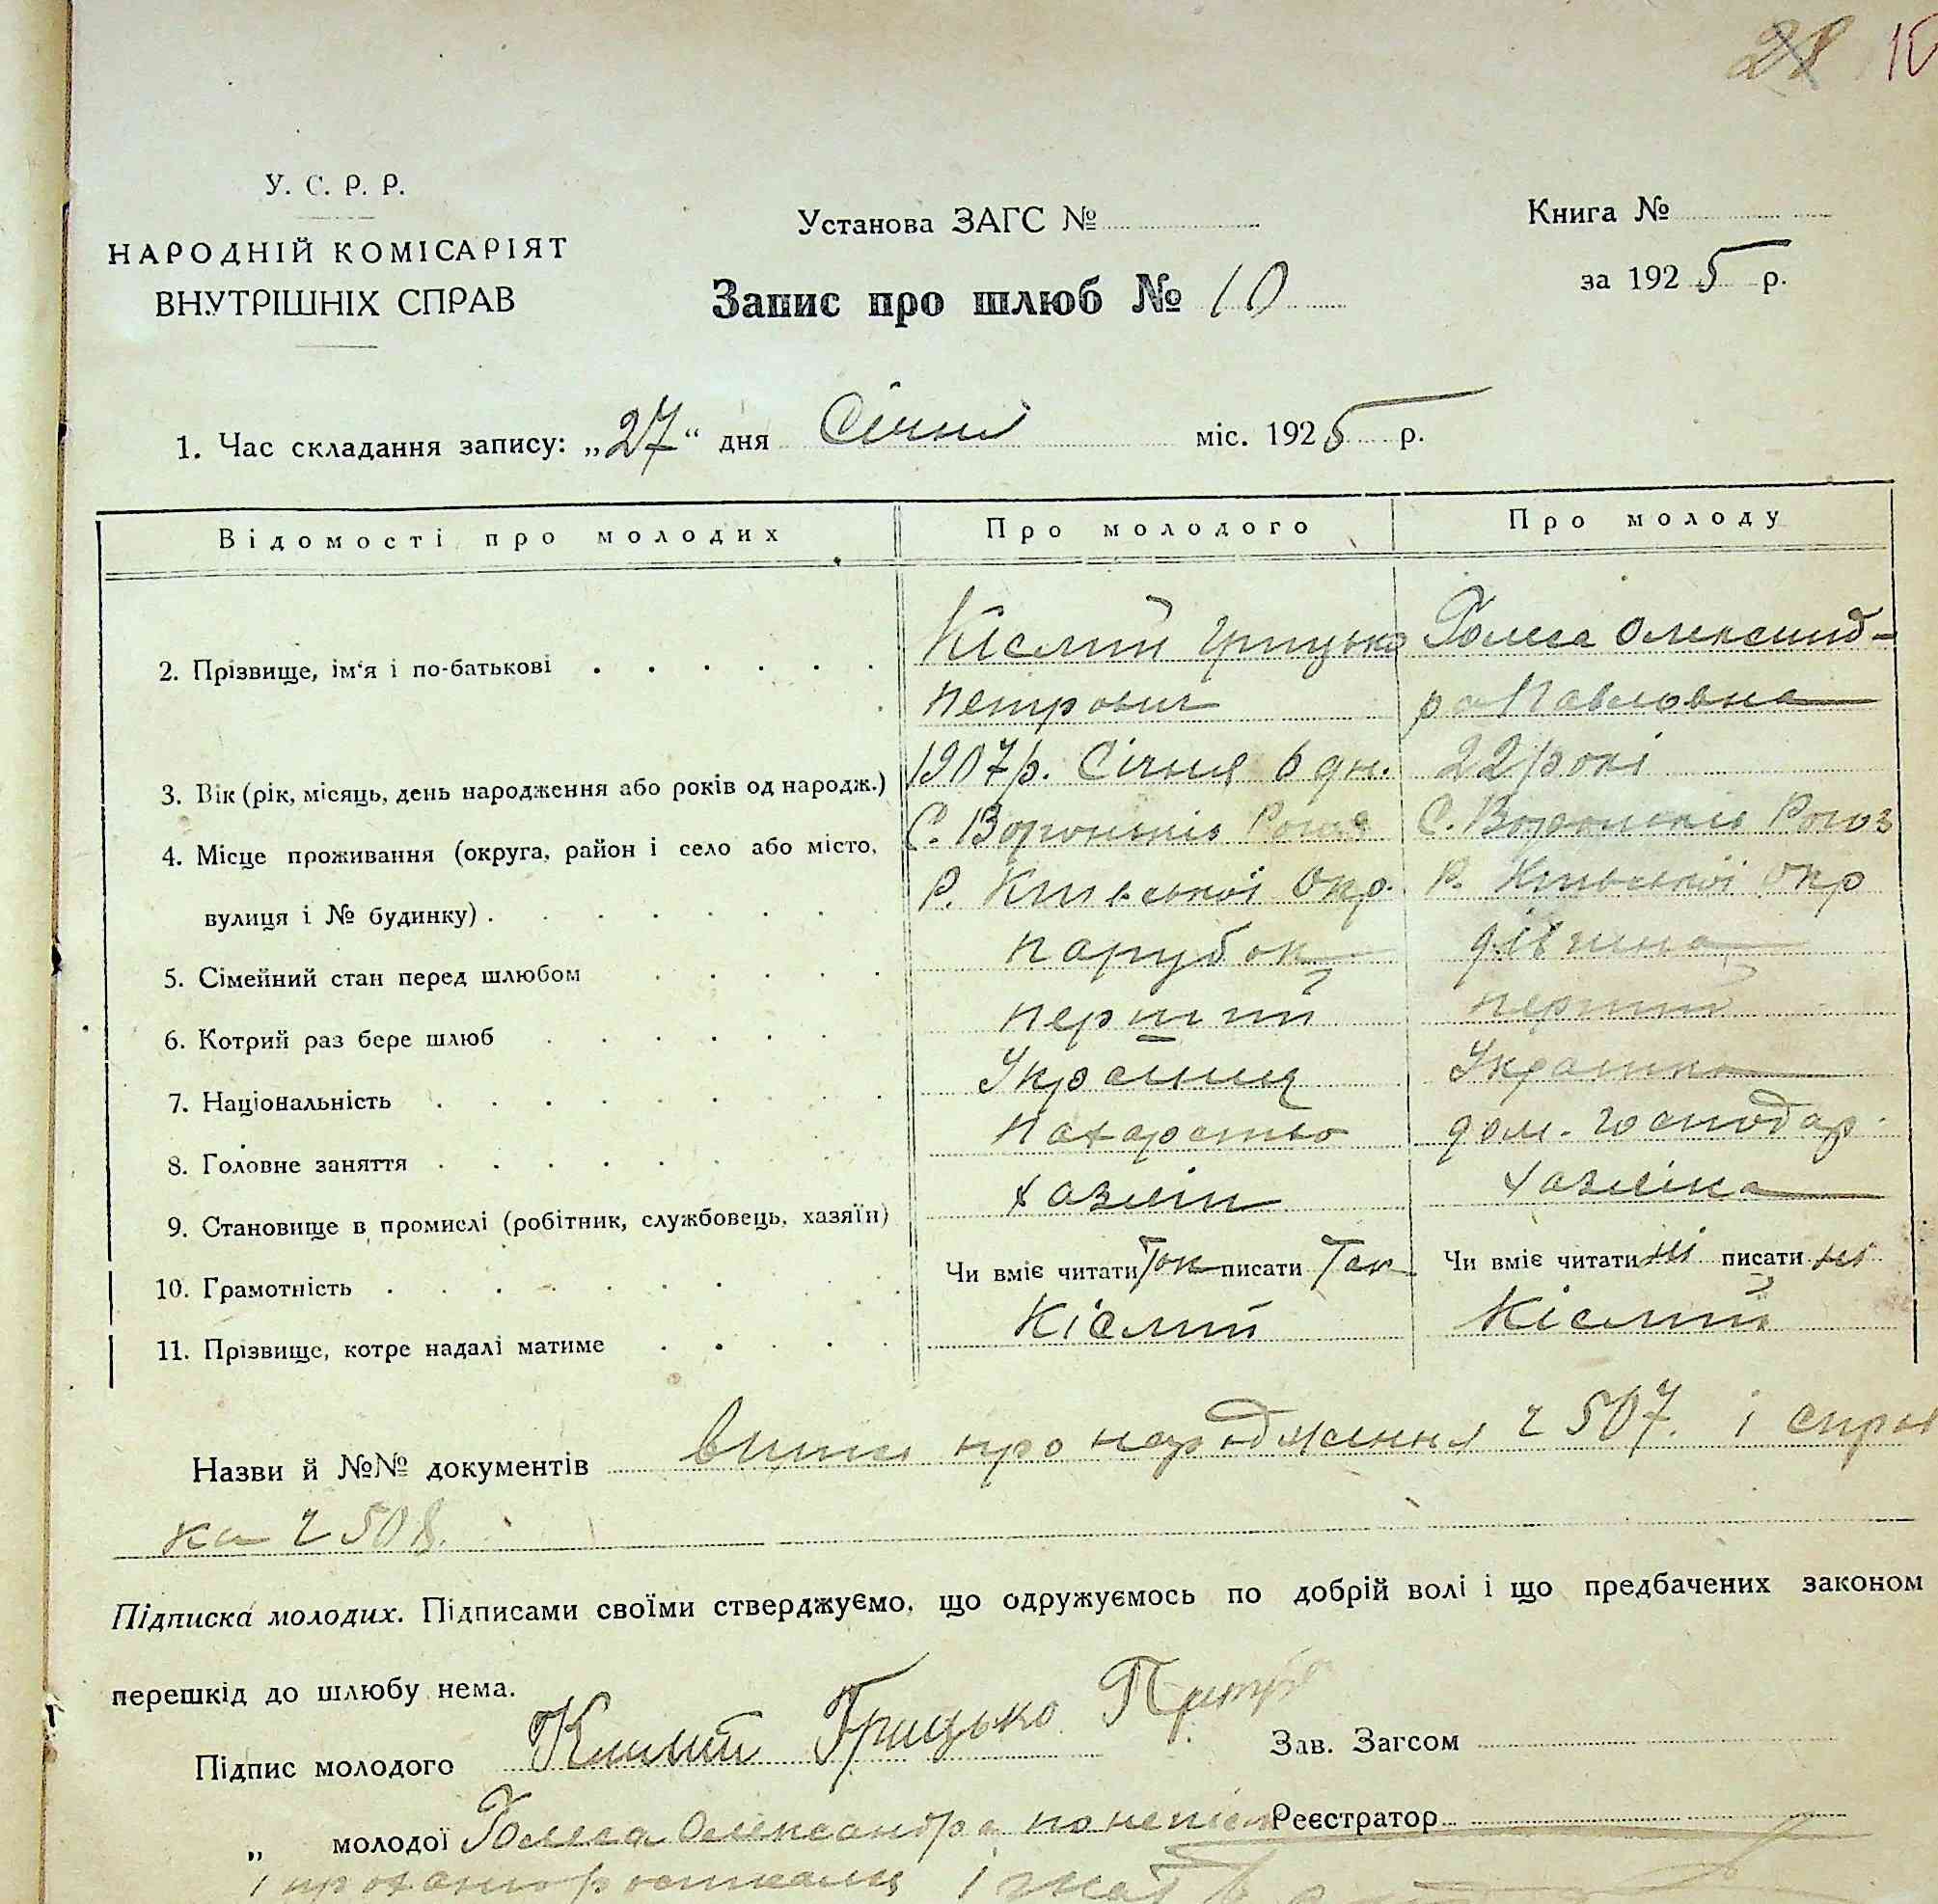 28 10
У. С. Р. Р.
НАРОДНІЙ КОМІСАРІЯТ
ВНУТРІШНІХ СПРАВ
Установа ЗАГС №
Книга №
за 1925 р.
Запис про шлюб № 10
1. Час складання запису: „27“ дня Січня міс. 1925 р.
Відомості про молодих Про молодого Про молоду
2. Прізвище, ім'я і по-батькові Кіслий Грицько Олександ-
Петрович ра Павловна
3. Вік (рік, місяць, день народження або років од народж.) 1907 р. Січня 6 дн. 22 роки
4. Місце проживання (округа, район і село або місто, С. Вороньків С. Вороньків Рогоз
вулиця і № будинку) Р. Київської Окр. Р. Київської Окр
5. Сімейний стан перед шлюбом парубок дівчина
6. Котрий раз бере шлюб перший перший
7. Національність Українец Украинка
8. Головне заняття пахарство дом. господар.
9. Становище в промислі (робітник, службовець, хазяїн) хазяін хазяіка
10. Грамотність Чи вміє читати Так писати Так Чи вміє читати ні писати ні
11. Прізвище, котре надалі матиме Кіслий Кіслий
Назви й №№ документів про народження ч 507. і справ
ка ч 508.
Підписка молодих. Підписами своїми стверджуємо, що одружуємось по добрій волі і що предбачених законом
перешкід до шлюбу нема.
Підпис молодого Кислий Грицько Петр
Зав. Загсом
„ молодої Олександра
Реєстратор